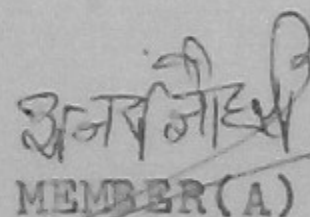 अजय जौहरी
MEMBER(A)